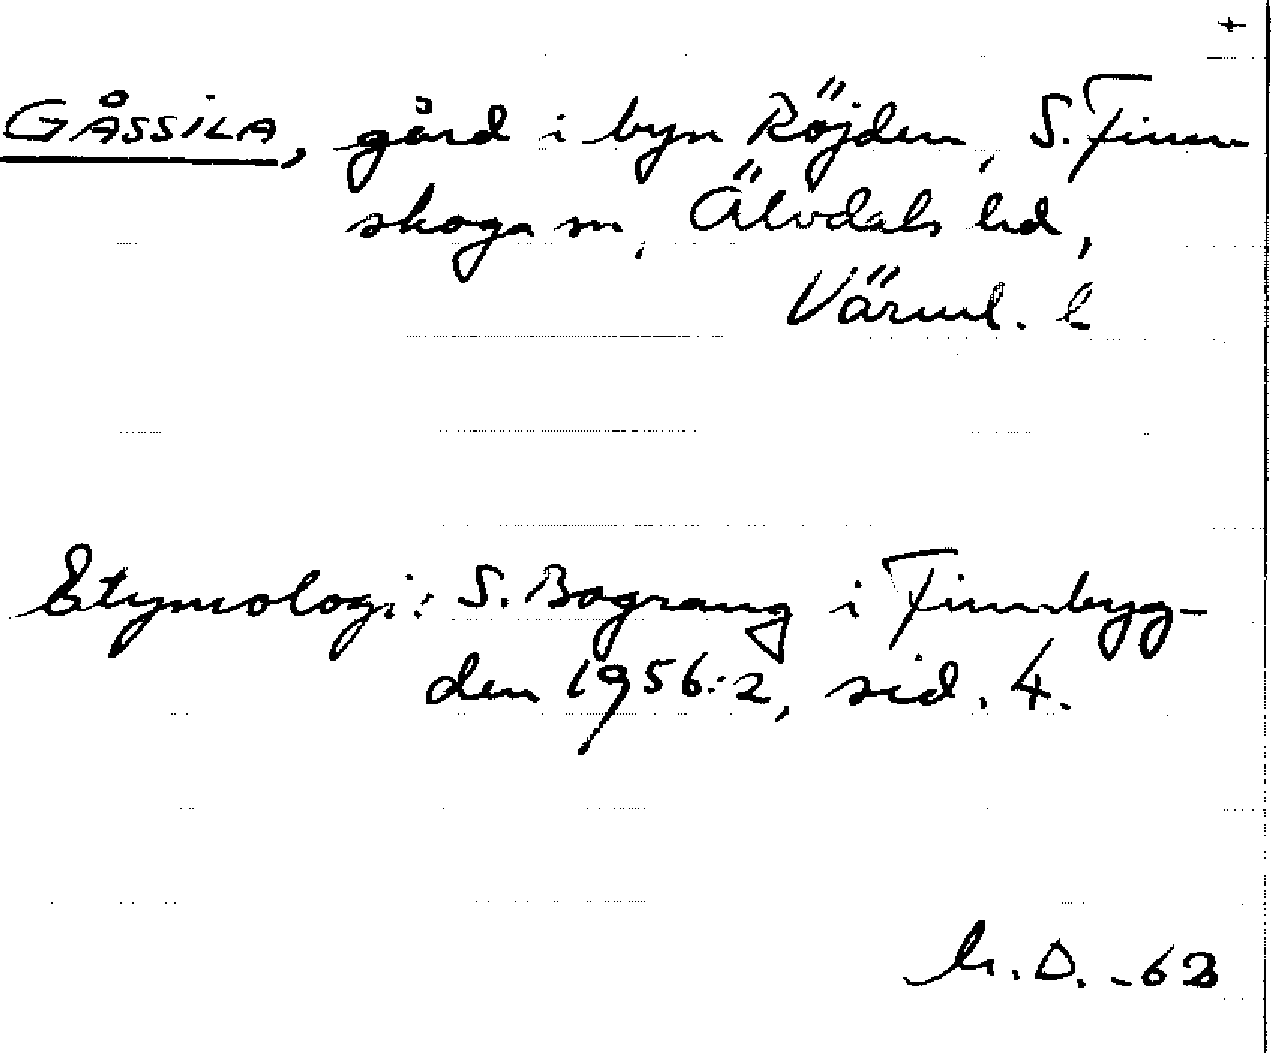 +
GÅSSILA, gård i byn Röjden, S. Finn
skoga sn, Älvdals hd,
Värml. l
Etymologi: S. Bograng i Finnbyg-
den 1956:2, sid. 4.
D. -63